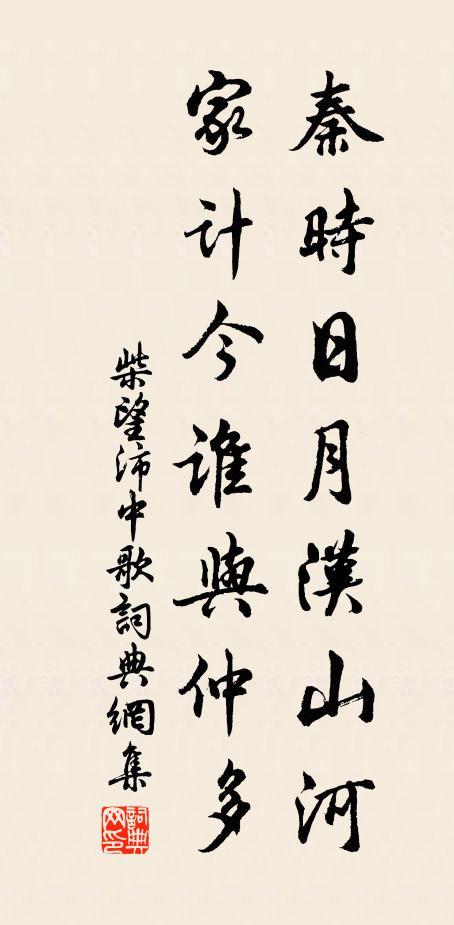 秦時日月漢山河
家計今誰與仲多
柴望沛中歌詞典網集
詞典网印